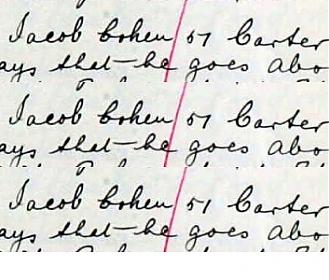 Jacob Cohen 51 Carter
ays that he goes abo
Jacob Cohen 51 Carter
ays that he goes abo
Jacob Cohen 51 Carter
ays that he goes abo